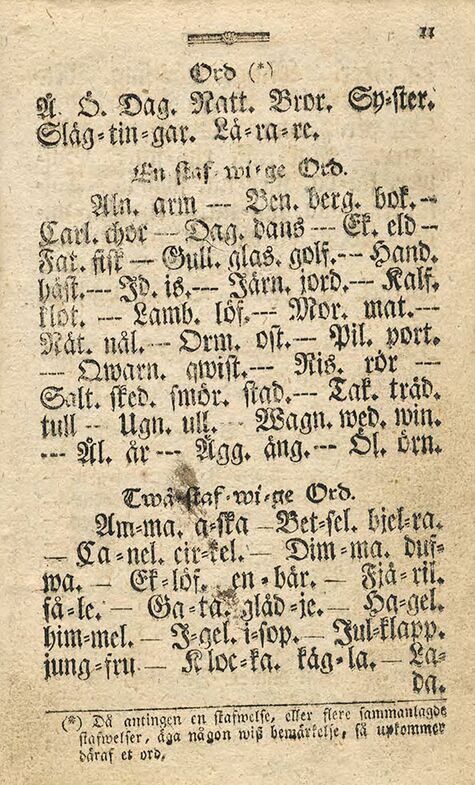 11
Ord (*)
Å. Ö. Dag. Natt. Bror. Sy-ster.
Släg-tin-gar. Lä-ra-re.
En staf-wi-ge Ord.
Aln. arm — Ben. berg. bok. —
Carl. chor — Dag. dans — Ek. eld —
Fat. fisk — Gull. glas. golf. — Hand.
häst. — Id. is. — Järn. jord. — Kalf.
klot. — Lamb. löf. — Mor. mat. —
Nät. nål. — Orm. ost. — Pil. port.
— Qwarn. qwist. — Ris. rör —
Salt. sked. smör. stad. — Tak. träd.
tull — Ugn. ull. — Wagn. wed. win.
— Ål. år — Ägg. äng. — Öl. örn.
Två-staf-wi-ge Ord.
Am-ma. a-ska — Bet-sel. bjel-ra.
— Ca-nel. cir-kel. — Dim-ma. duf-
wa. — Ek-löf. en-bär. — Fjä-ril.
få-le. — Ga-ta. gläd-je. — Ha-gel.
him-mel. — I-gel. i-sop. — Jul-klapp.
jung-fru — Kloc-ka. käg-la. — La-
da.
(*) Då antingen en stafwelse, eller flere sammanlagde
stafwelser, äga någon wiß bemärkelse, så upkommer
däraf et ord.